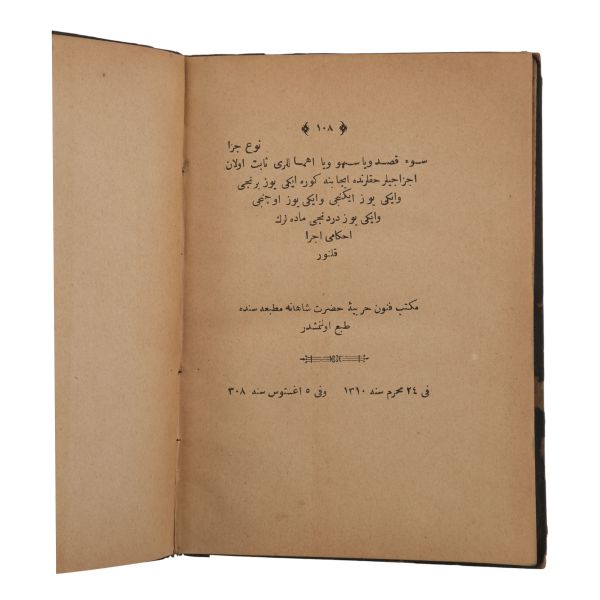 ﴿ ١٠٨ ﴾
نوع جزا
سوء قصد ويا سهو ويا اهماللری ثابت اولان
اجزاجيلر حقلرنده ايجابنه كوره ايكی يوز برنجی
وايكی يوز ايكنجی وايكی يوز اوچنجی
وايكی يوز دردنجی ماده لرك
احكامی اجرا
قلنور
مكتب فنون حربيهٔ حضرت شاهانه مطبعه سنده
طبع اولنمشدر
فی ٢٤ محرم سنه ١٣١٠ وفی ٥ اغستوس سنه ٣٠٨